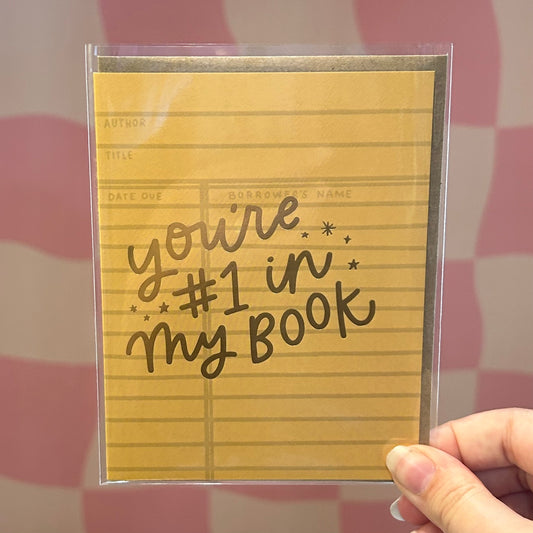 AUTHOR
TITLE
DATE DUE BORROWER'S NAME
you're
#1 in
my BOOK